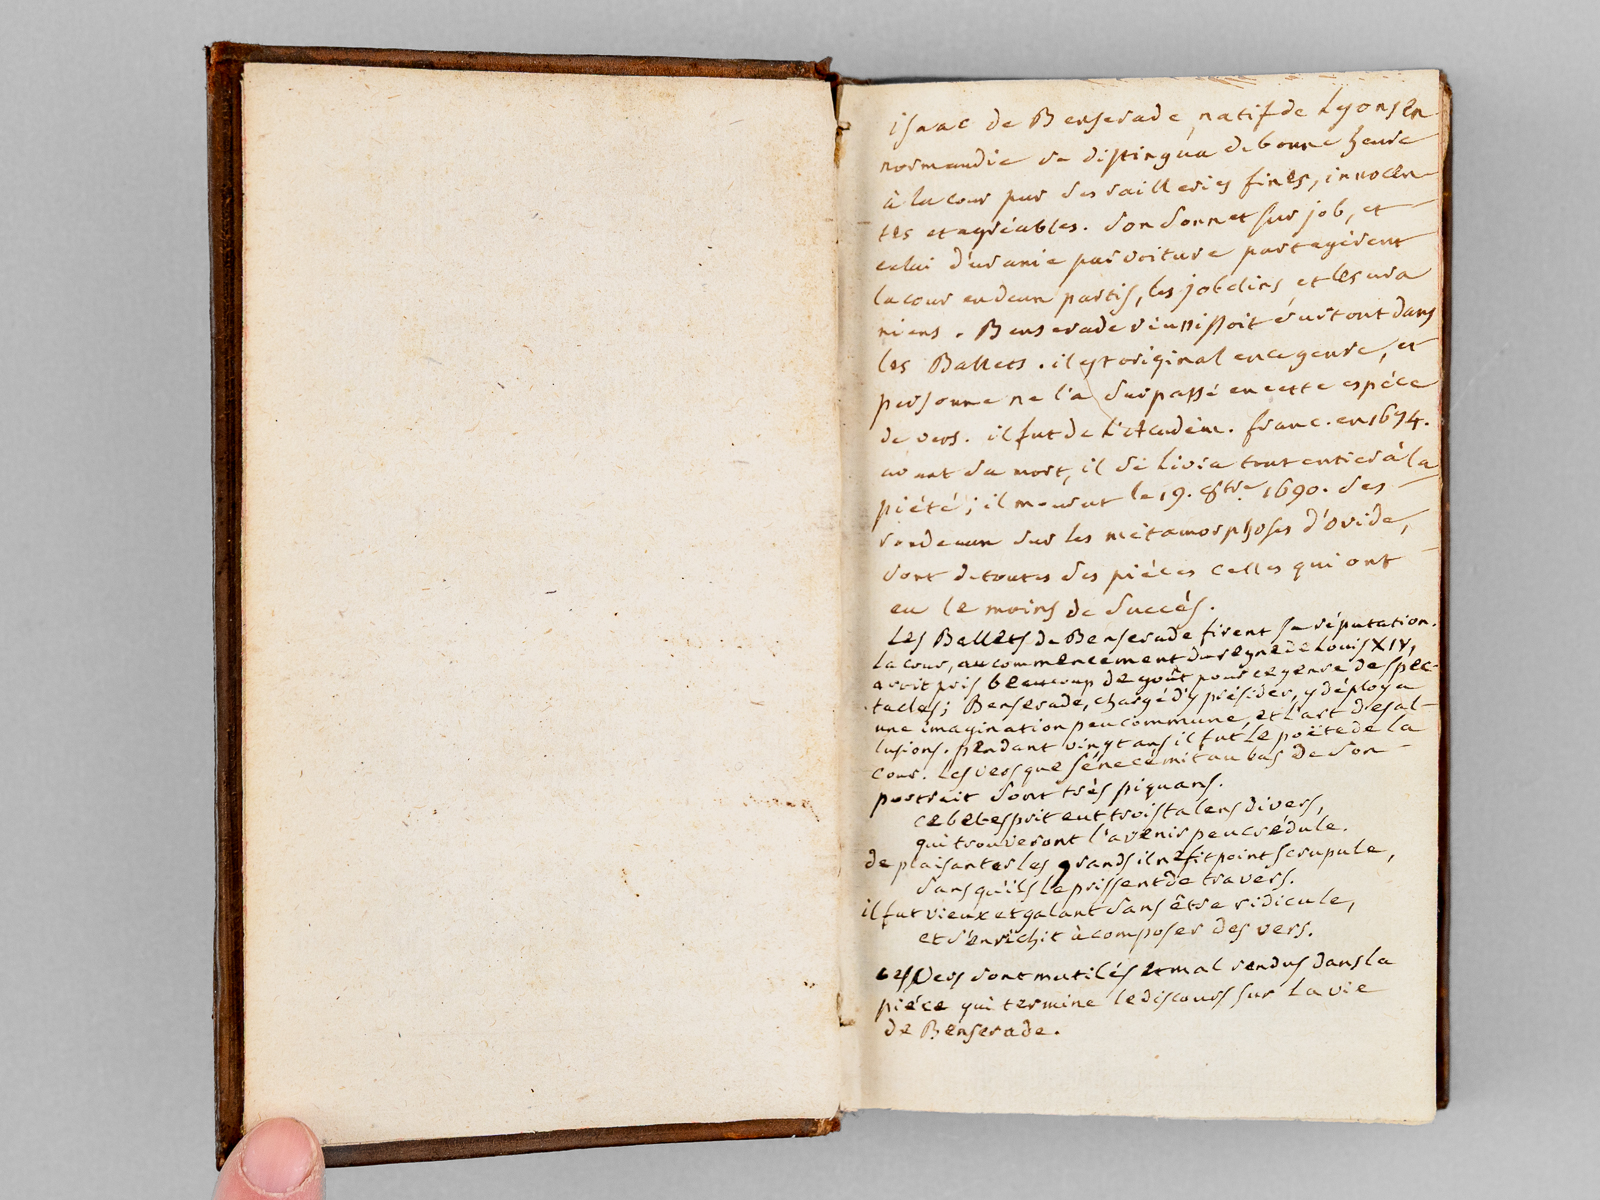 isaac de Benserade, natif de Lyons en
normandie se distingua de bonne heure
à la cour par ses railleries fines, innocen-
tes et agréables. Son Sonnet sur job, et
celui d'uranie par voiture partagèrent
la cour en deux partis, les jobelins et les ura
niens. Benserade réussissoit surtout dans
les Ballets. il est original en ce genre, et
personne ne l'a surpassé en cette espéce
de vers. il fut de L'Academ. franc. en 1674.
avant sa mort, il se livra tout entier à la
piété; il mourut le 19. 8bre 1690. Ses
rondeaux sur les métamorphoses d'ovide,
sont de toutes ses piéces celles qui ont
eu le moins de succès.
Les Ballets de Benserade firent sa réputation.
La cour, au commencement du regne de Louis XIV,
avoit pris beaucoup de goût pour ce genre de spec-
tacles; Benserade, chargé d'y présider, y déploya
une imagination peu commune, et l'art des al-
lusions. pendant vingt ans il fut le poëte de la
cour. Les vers que sénecé mit au bas de son
portrait sont très piquans.
ce bel esprit eut trois talens divers,
qui trouveront l'avenir peu crédule.
de plaisanter les grands il ne fit point scrupule,
sans qu'ils le prissent de travers.
il fut vieux et galant sans être ridicule,
et s'enrichit à composer des vers.
ces Vers sont mutilés et mal rendus dans la
piéce qui termine le discours sur La vie
de Benserade.